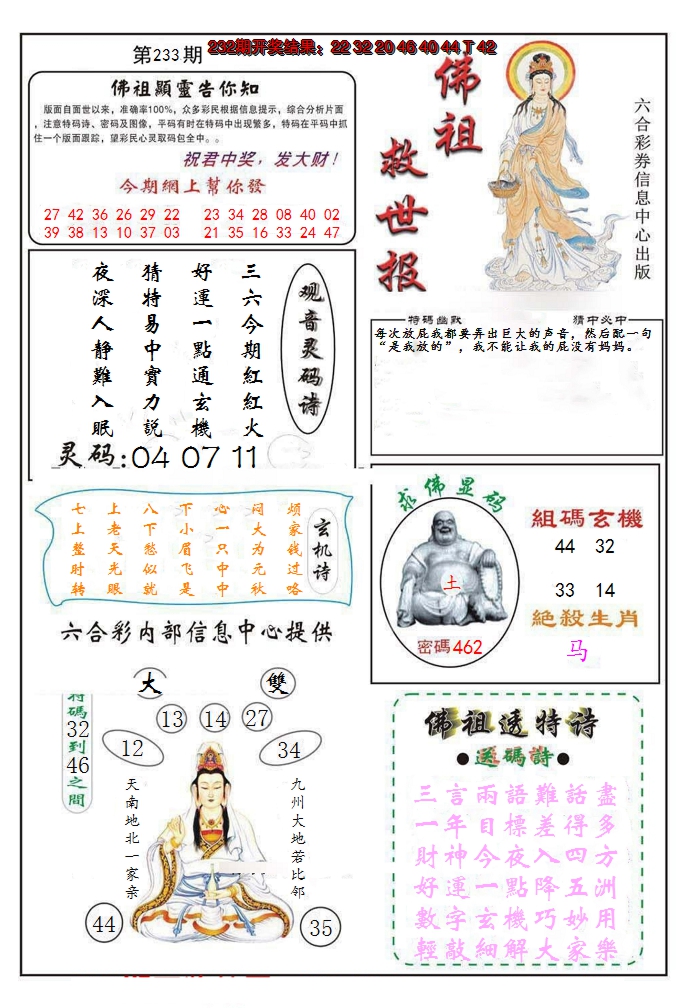 第233期
232期开奖结果：22 32 20 46 40 44 T 42
佛祖顯靈告你知
版面自面世以来，准确率100%，众多彩民根据信息提示，综合分析片面
，注意特码诗、密码及图像，平码有时在特码中出现繁多，特码在平码中抓
住一个版面跟踪，望彩民心灵取码包全中。。
祝君中奖，发大财！
今期網上幫你發
27 42 36 26 29 22 23 34 28 08 40 02
39 38 13 10 37 03 21 35 16 33 24 47
佛祖
救世报
六合彩券信息中心出版
观音灵码诗
三六今期紅紅火
好運一點通玄機
猜特易中實力説
夜深人静難入眠
灵码:04 07 11
特碼幽默
猜中必中
每次放屁我都要弄出巨大的声音，然后配一句
“是我放的”，我不能让我的屁没有妈妈。
玄机诗
烦家钱过咯
问大为元秋
心一只中中
下小眉飞是
八下愁似就
上老天光眼
七上整时转
六合彩内部信息中心提供
求佛显码
土
密碼462
組碼玄機
44 32
33 14
絶殺生肖
马
大
雙
13
14
27
12
34
特碼32到46之間
天南地北一家亲
九州大地若比邻
44
35
佛祖透特诗
●送碼詩●
三言兩語難話盡
一年目標差得多
財神今夜入四方
好運一點降五洲
數字玄機巧妙用
輕敲細解大家樂